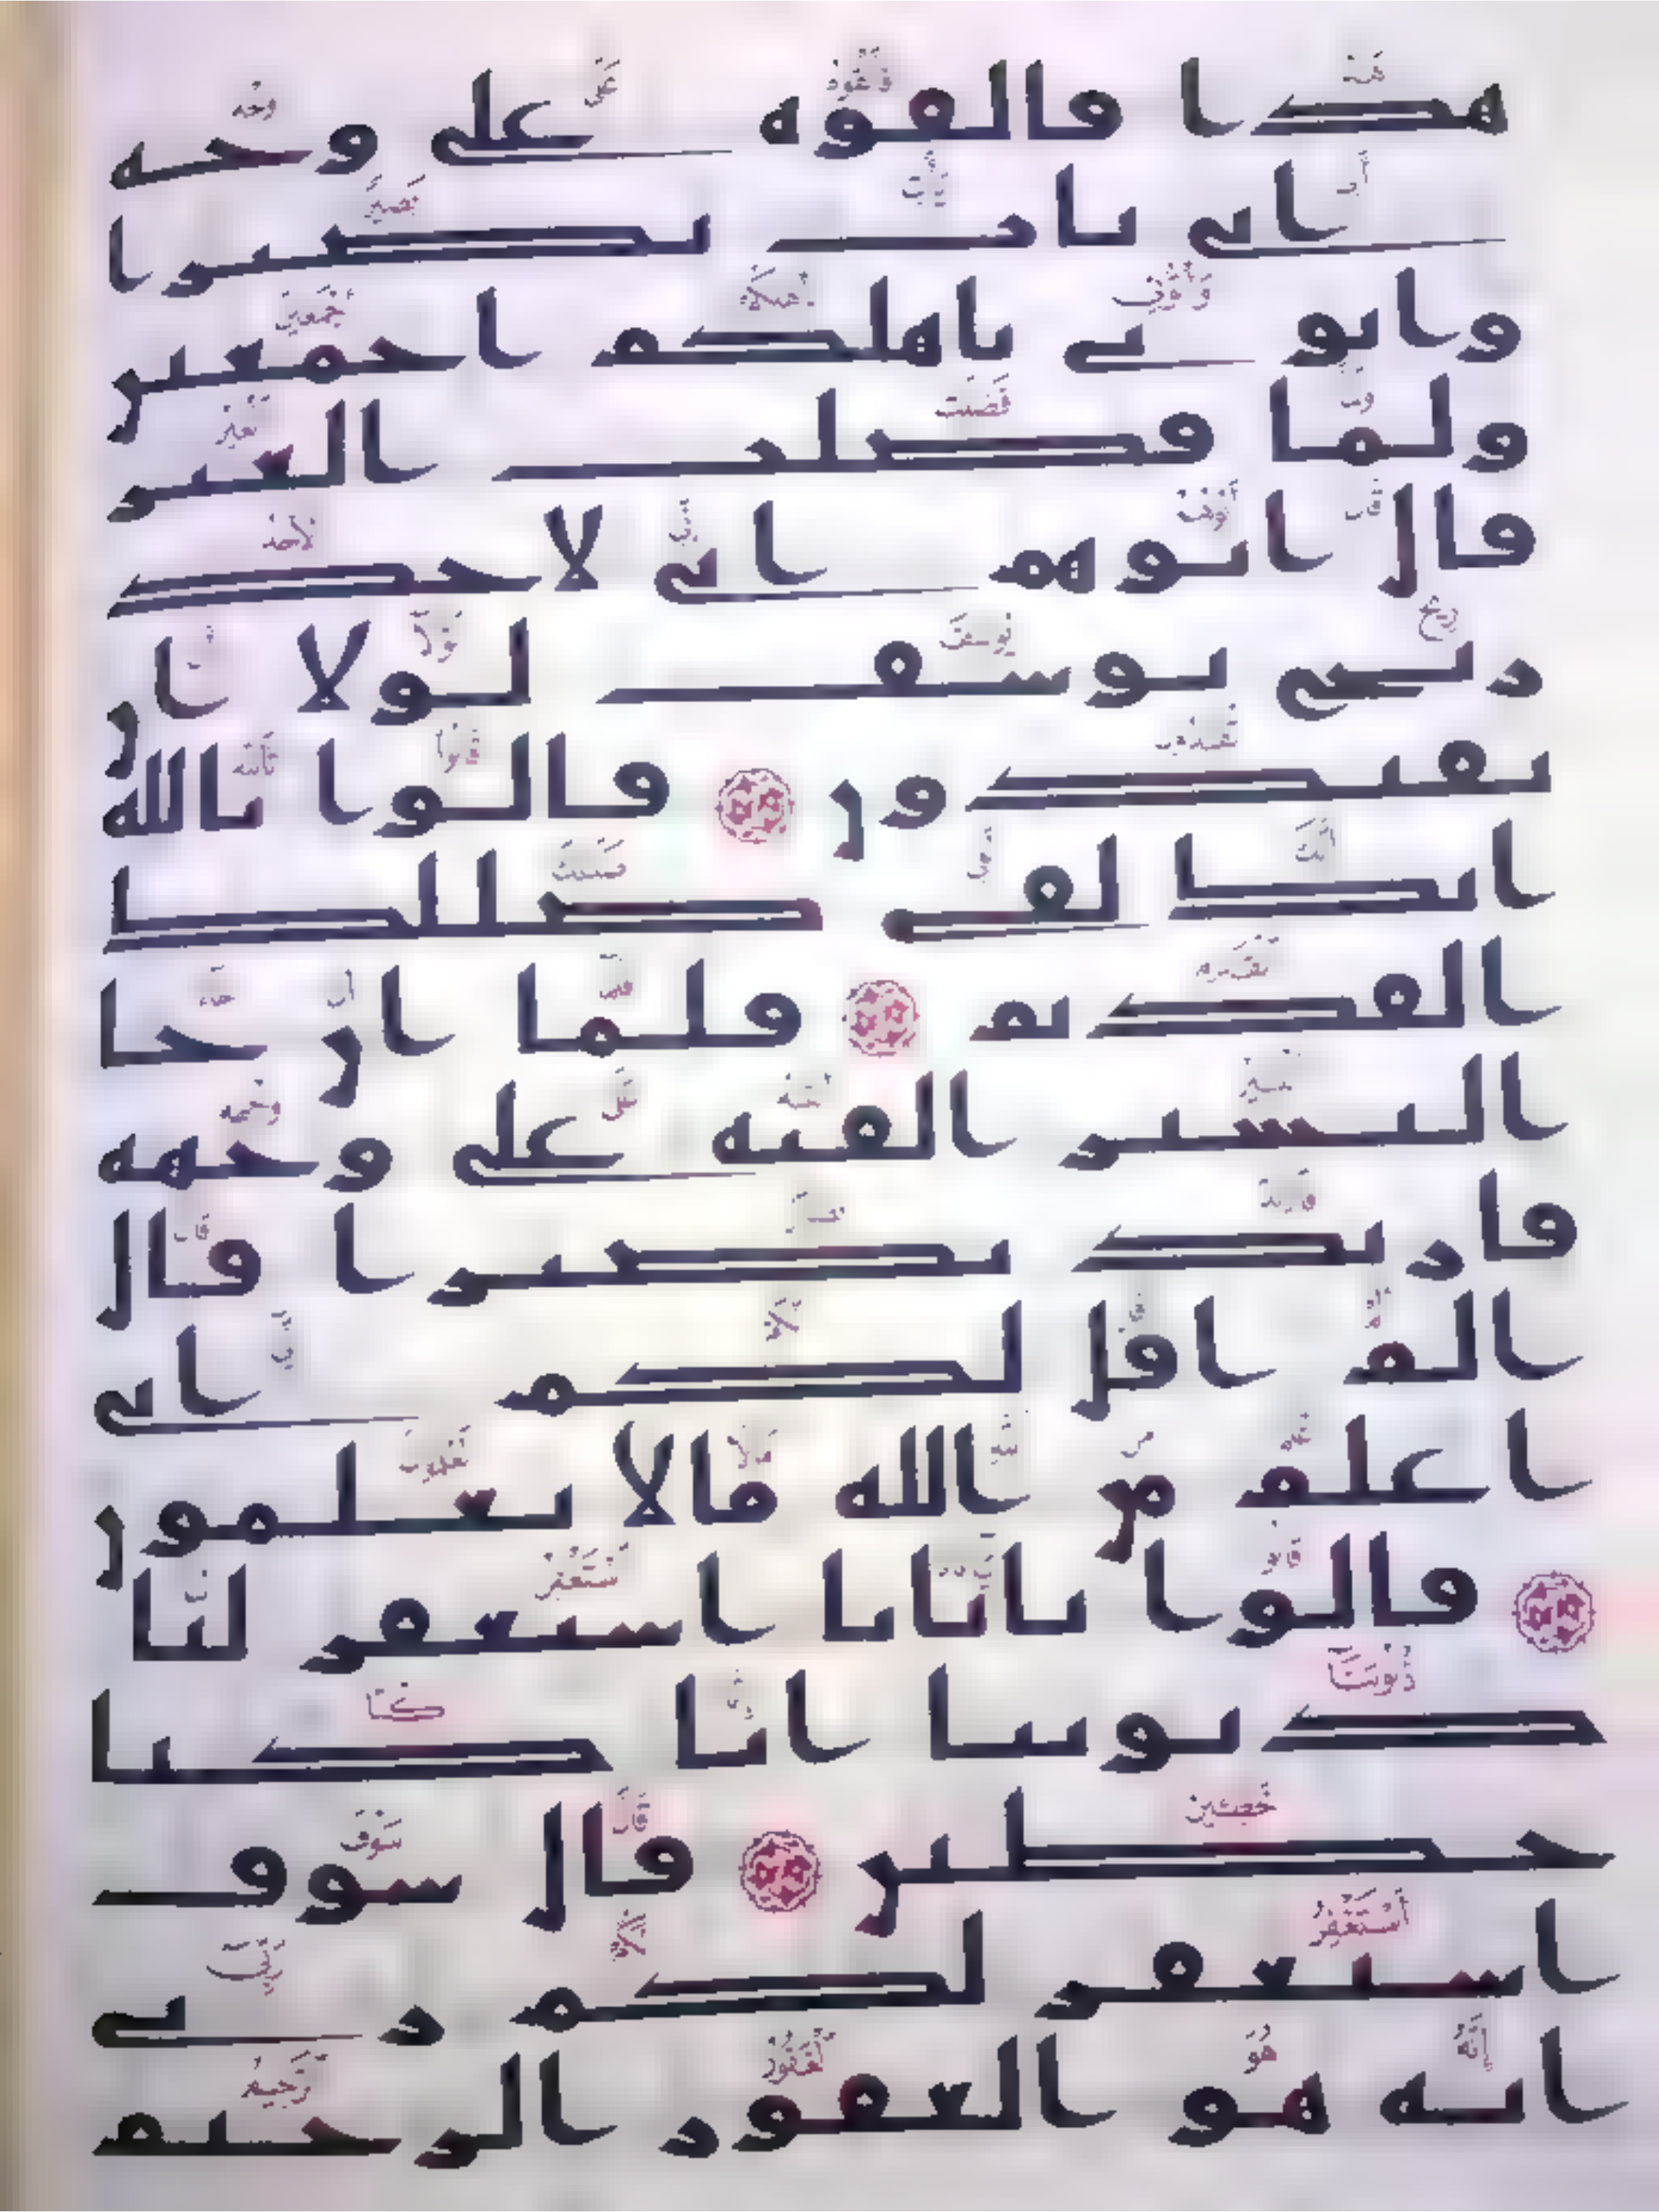 هذا فالقوه على وجه
ابي يات بصيرا
واتوني باهلكم اجمعين
ولما فصلت العير
قال ابوهم اني لاجد
ريح يوسف لولا ان
تفندون قالوا تالله
انك لفي ضللك
القديم فلما ان جا
البشير القيه على وجهه
فارتد بصيرا قال
الم اقل لكم اني
اعلم من الله ما لا تعلمون
قالوا يابانا استغفر لنا
ذنوبنا انا كنا
خطين قال سوف
استغفر لكم ربي
انه هو الغفور الرحيم